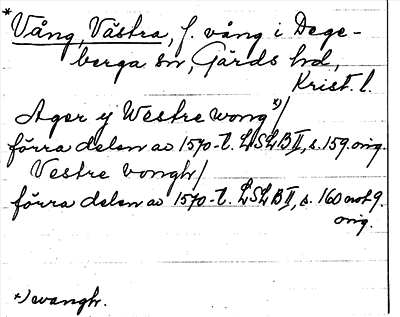 * Vång, Västra, f. vång i Dege-
berga sn, Gärds hd,
Krist. l.
Ager y Westre wong x)/
förra delen av 1570-t. LSLB II, s. 159. orig.
Vestre vongh/
förra delen av 1570-t. LSLB II, s. 160 not 9.
orig.
x) wangh.